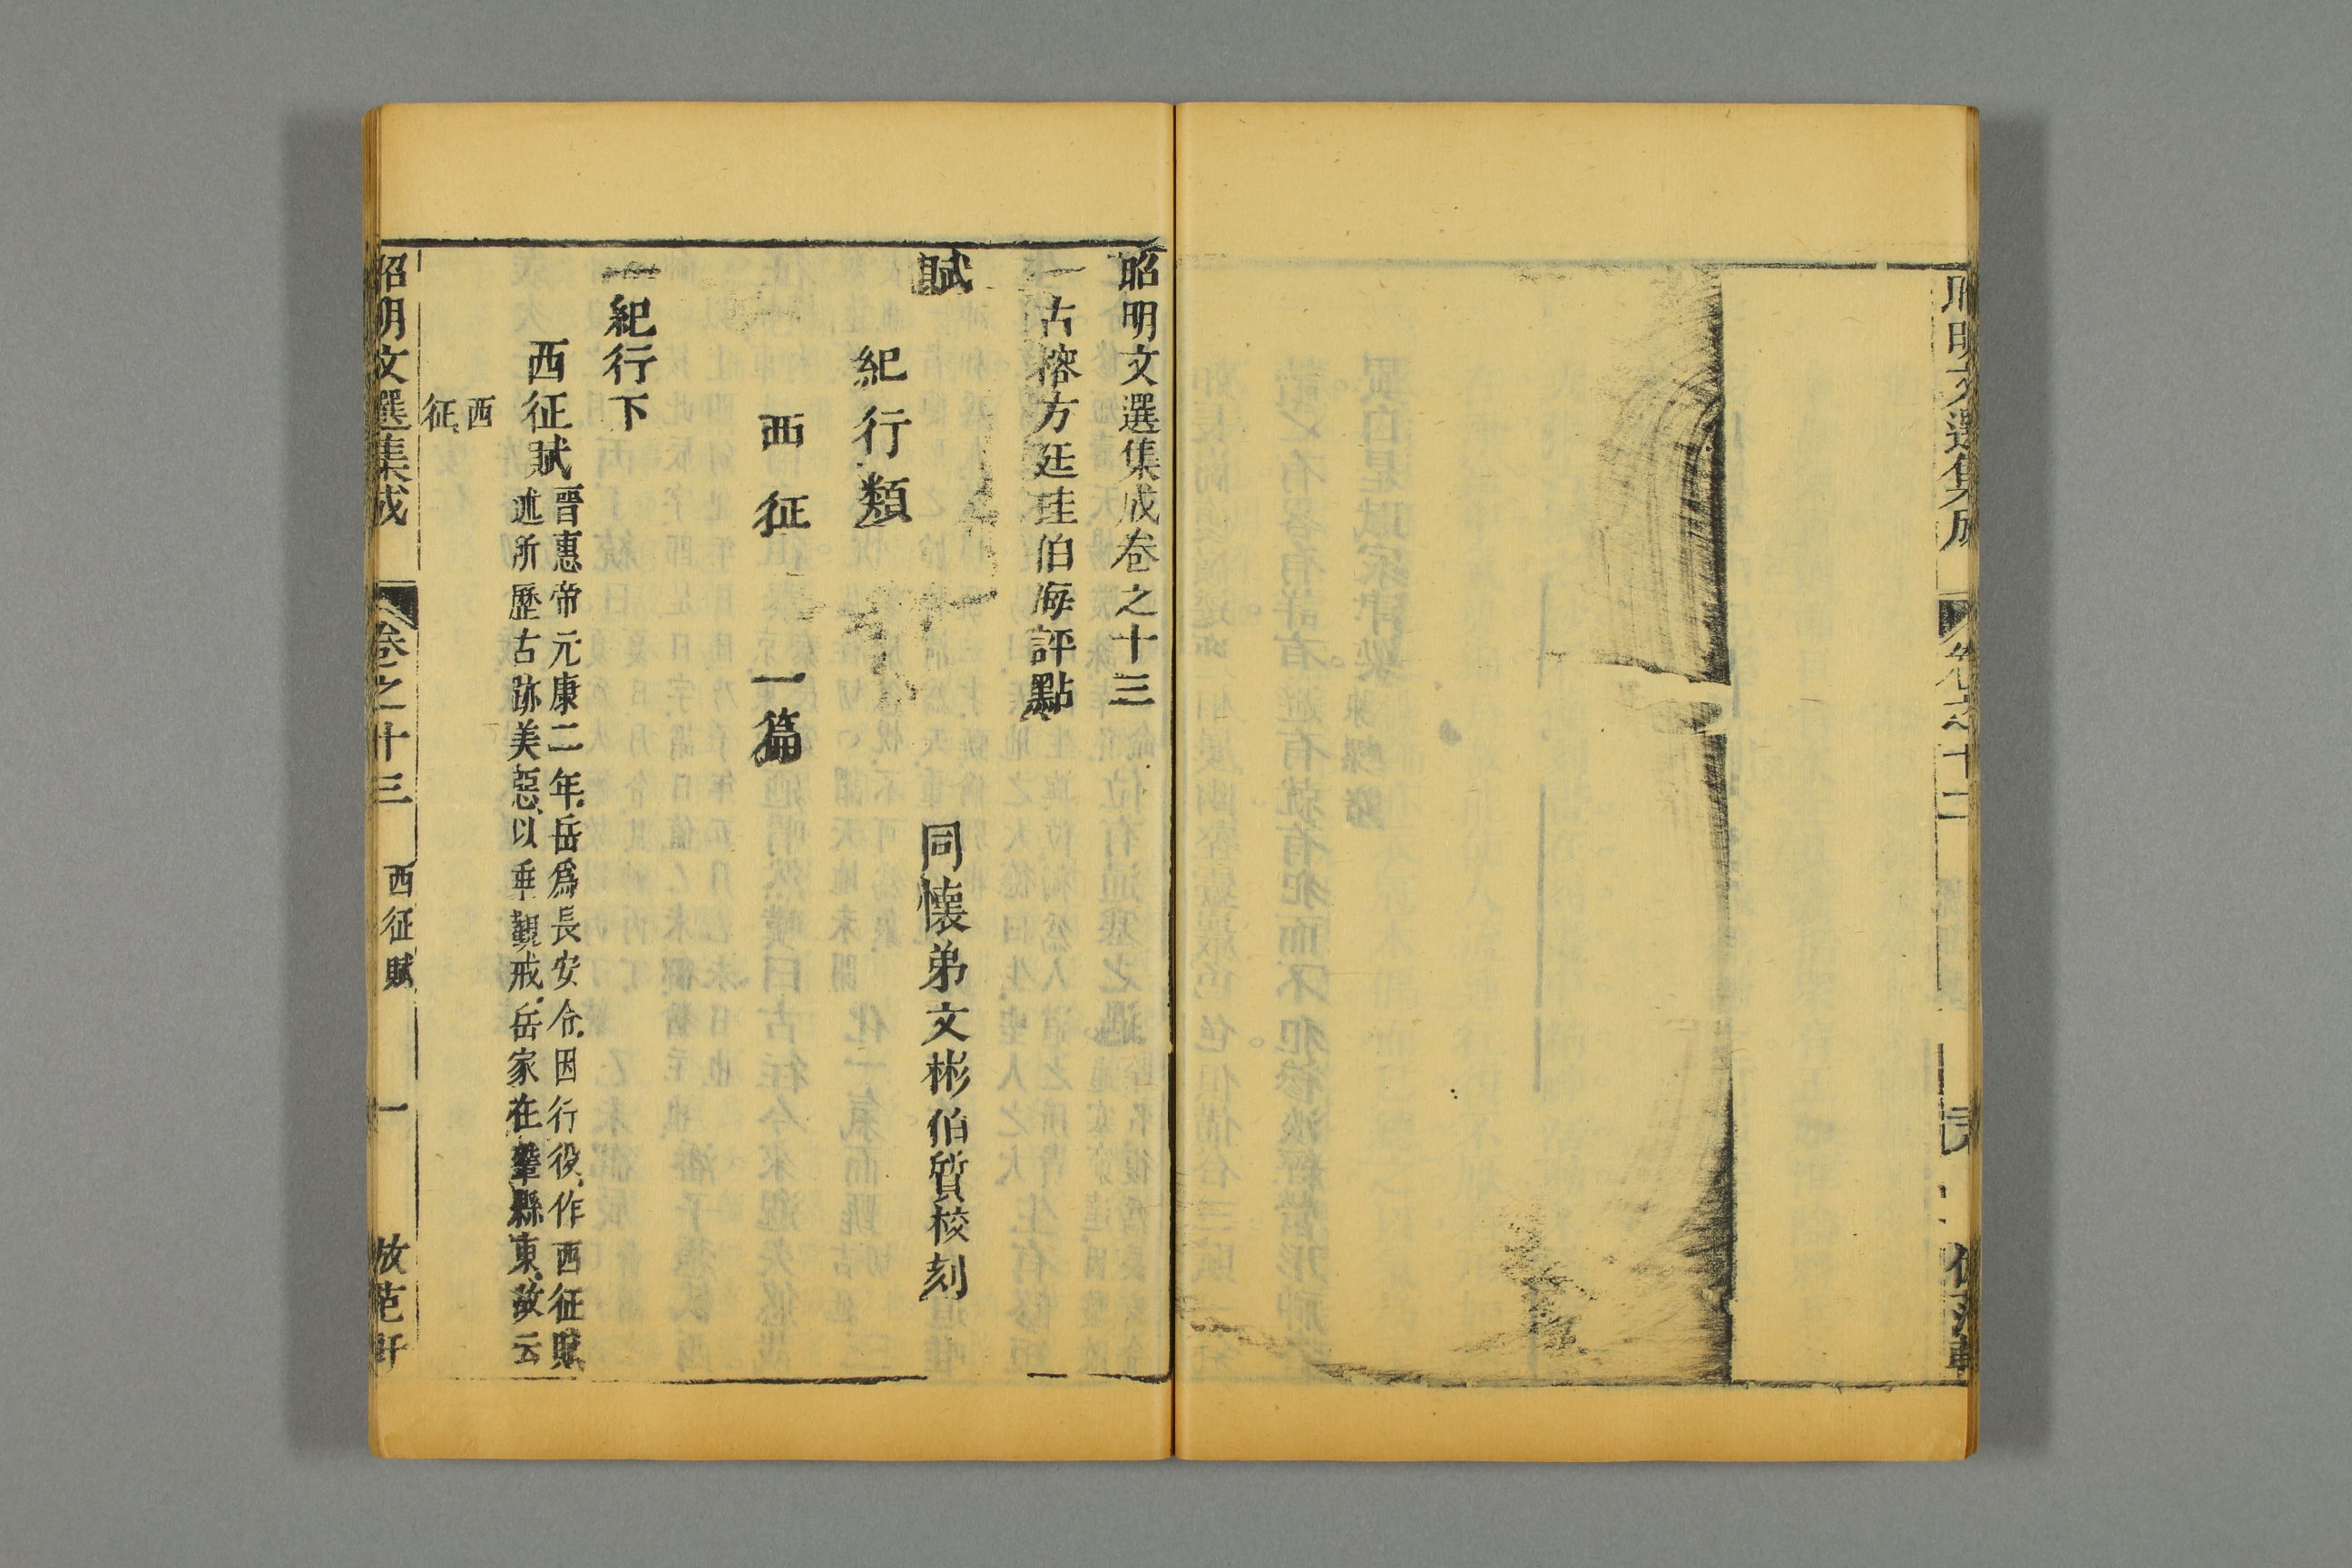 昭明文選集成
卷之十二
昭明文選集成卷之十三
古樒方廷珪伯海評點
賦
同懷弟文彬伯質校刻
紀行類
西征一篇
紀行下
西征賦
晉惠帝元康二年岳為長安令因行役作西征賦
述所歷古跡美惡以垂觀戒岳家在鞏縣東故云
西
征
昭明文選集成
卷之十三
西征賦
一
放范軒